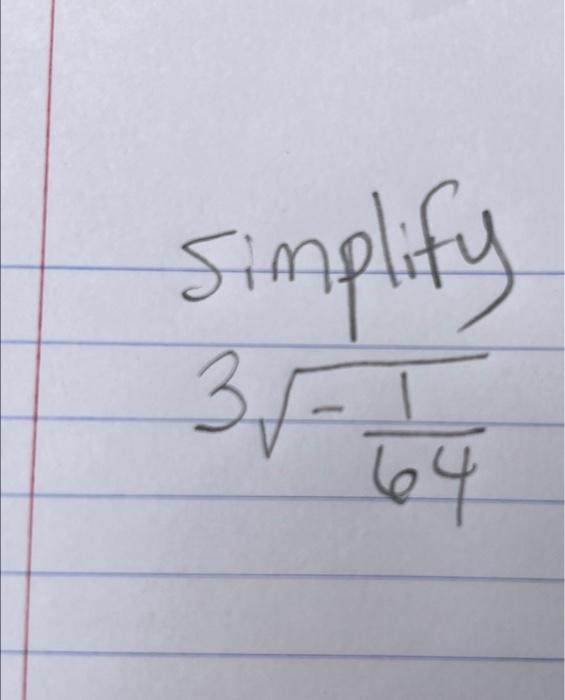 simplify
3√-1/64